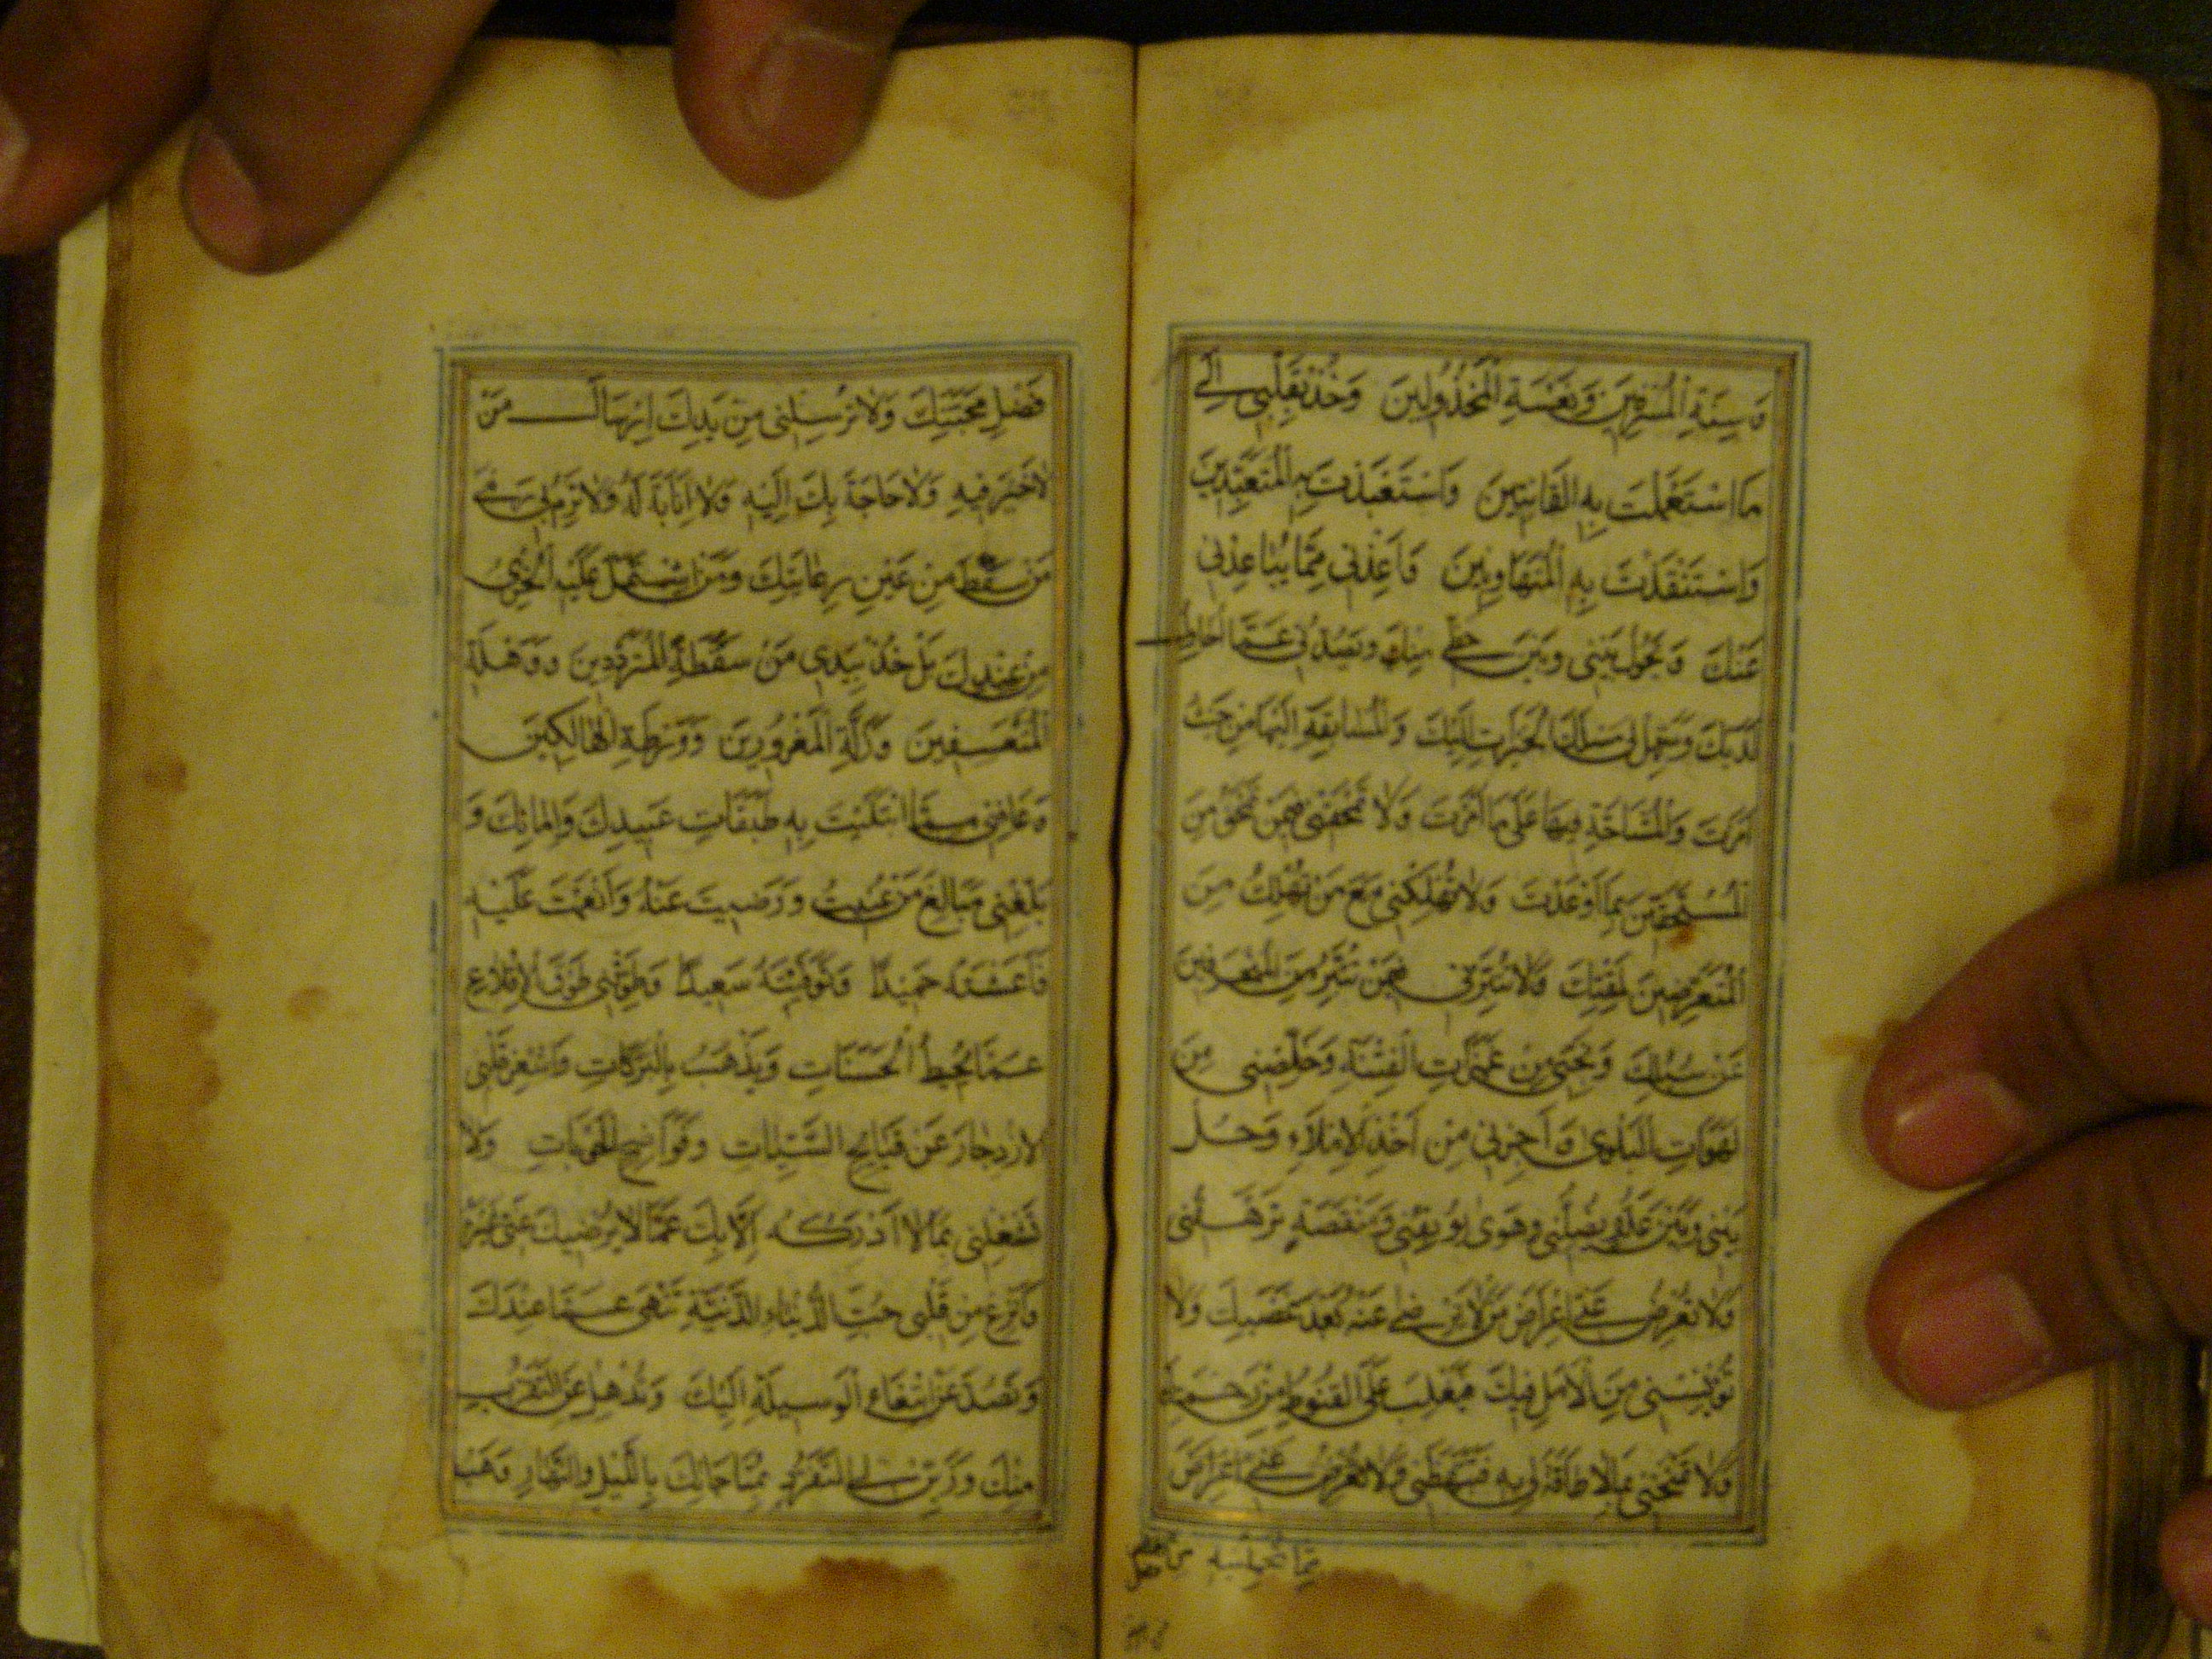 وَسِنَةِ الْمُسْرِفِينَ وَنَعْسَةِ الْمَخْذُولِينَ وَخُذْ بِقَلْبِي اِلَى
مَا اسْتَعْمَلْتَ بِهِ الْقَانِتِينَ وَاسْتَعْبَدْتَ بِهِ الْمُتَعَبِّدِينَ
وَاسْتَنْقَذْتَ بِهِ الْمُتَهَاوِنِينَ وَاَعِذْنِي مِمَّا يُبَاعِدُنِي
عَنْكَ وَيَحُولُ بَيْنِي وَبَيْنَ حَظِّي مِنْكَ وَيَصُدُّنِي عَمَّا اُحَاوِلُ
لَدَيْكَ وَسَهِّلْ لِي مَسْلَكَ الْخَيْرَاتِ اِلَيْكَ وَالْمُسَابَقَةِ اِلَيْهَا مِنْ حَيْثُ
اَمَرْتَ وَالْمُشَاحَّةِ فِيهَا عَلَى مَا اَرَدْتَ وَلَا تَمْحَقْنِي فِيمَنْ تَمْحَقُ مِنَ
الْمُسْتَخِفِّينَ بِمَا اَوْعَدْتَ وَلَا تُهْلِكْنِي مَعَ مَنْ تُهْلِكُ مِنَ
الْمُتَعَرِّضِينَ لِمَقْتِكَ وَلَا تُتَبِّرْنِي فِيمَنْ تُتَبِّرُ مِنَ الْمُنْحَرِفِينَ
عَنْ سُبُلِكَ وَنَجِّنِي مِنْ غَمَرَاتِ الْفِتْنَةِ وَخَلِّصْنِي مِنَ
لَهَوَاتِ الْبَلْوَى وَاَجِرْنِي مِنْ اَخْذِ الْاِمْلَاءِ وَحُلْ
بَيْنِي وَبَيْنَ عَدُوٍّ يُضِلُّنِي وَهَوًى يُوبِقُنِي وَمَنْقَصَةٍ تَرْهَقُنِي
وَلَا تُعْرِضْ عَنِّي اِعْرَاضَ مَنْ لَا تَرْضَى عَنْهُ بَعْدَ غَضَبِكَ وَلَا
تُؤْيِسْنِي مِنَ الْاَمَلِ فِيكَ فَيَغْلِبَ عَلَيَّ الْقُنُوطُ مِنْ رَحْمَتِكَ
وَلَا تَمْنَحْنِي بِمَا لَا طَاقَةَ لِي بِهِ فَتَبْهَظَنِي وَلَا تُعْرِضْ عَنِّي اِعْرَاضَ
مِمَّا تُحَمِّلُنِيهِ مِنْ فَضْلِ
فَضْلِ مَحَبَّتِكَ وَلَا تُرْسِلْنِي مِنْ يَدِكَ اِرْسَالَ مَنْ
لَا خَيْرَ فِيهِ وَلَا حَاجَةَ بِكَ اِلَيْهِ وَلَا اِنَابَةَ لَهُ وَلَا تَرْمِ بِي رَمْيَ
مَنْ سَقَطَ مِنْ عَيْنِ رِعَايَتِكَ وَمَنِ اشْتَمَلَ عَلَيْهِ الْخِزْيُ
مِنْ عِنْدِكَ بَلْ خُذْ بِيَدِي مِنْ سَقْطَةِ الْمُتَرَدِّدِينَ وَوَهْلَةِ
الْمُتَعَسِّفِينَ وَزَلَّةِ الْمَغْرُورِينَ وَوَرْطَةِ الْهَالِكِينَ
وَعَافِنِي مِمَّا ابْتَلَيْتَ بِهِ طَبَقَاتِ عَبِيدِكَ وَاِمَائِكَ وَ
بَلِّغْنِي مَبَالِغَ مَنْ عُنِيتَ بِهِ وَرَضِيتَ عَنْهُ وَاَنْعَمْتَ عَلَيْهِ
فَاَعَشْتَهُ حَمِيدًا وَتَوَفَّيْتَهُ سَعِيدًا وَطَوِّقْنِي طَوْقَ الْاِقْلَاعِ
عَمَّا يُحْبِطُ الْحَسَنَاتِ وَيَذْهَبُ بِالْبَرَكَاتِ وَاَشْعِرْ قَلْبِي
الْاِزْدِجَارَ عَنْ قَبَائِحِ السَّيِّئَاتِ وَفَوَاضِحِ الْحَوْبَاتِ وَلَا
تَشْغَلْنِي بِمَا لَا اُدْرِكُهُ اِلَّا بِكَ عَمَّا لَا يُرْضِيكَ عَنِّي غَيْرُهُ
وَانْزِعْ مِنْ قَلْبِي حُبَّ الدُّنْيَاءِ الدَّنِيَّةِ تَنْهَى عَمَّا عِنْدَكَ
وَتَصُدُّ عَنِ ابْتِغَاءِ الْوَسِيلَةِ اِلَيْكَ وَتُذْهِلُ عَنِ التَّقَرُّبِ
مِنْكَ وَزَيِّنْ لِيَ التَّفَرُّدَ بِمُنَاجَاتِكَ بِاللَّيْلِ وَالنَّهَارِ وَهَبْ